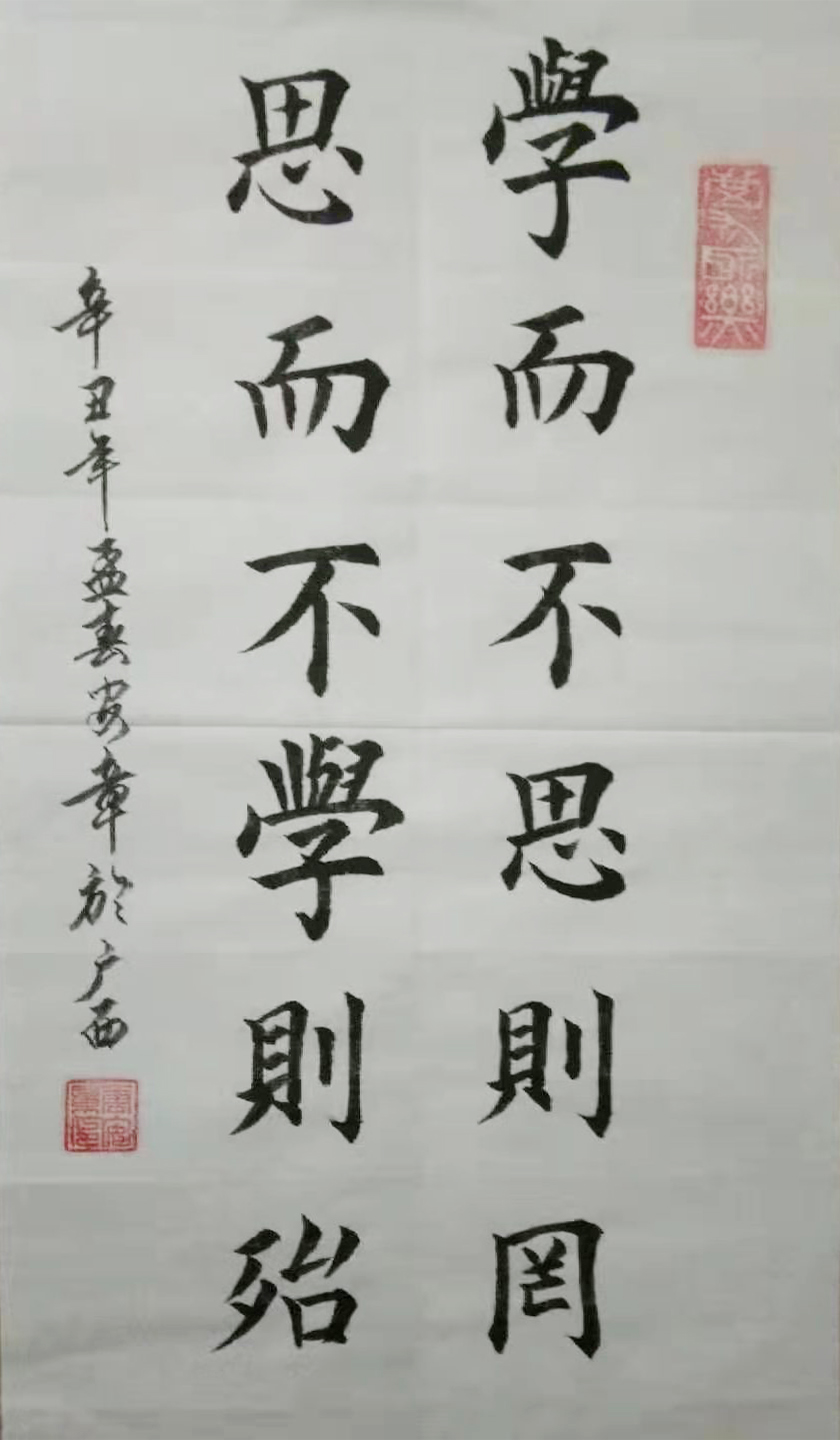 學而不思則罔
思而不學則殆
辛丑年孟春安章於广西